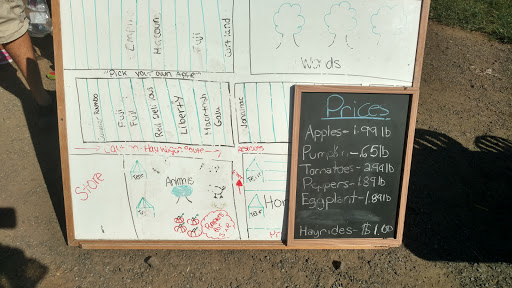 Empire
Macoun
Fuji
Cortland
Woods
"Pick your own Apple"
Rambo
Fuji
Red Delicious
Liberty
Macintosh
Gala
Jonamac
Hay Wagon Route
Store
Animals
Prices
Apples-1.99 lb
Pumpkin-.65 lb
Tomatoes-2.99 lb
Peppers-1.89 lb
Eggplant-1.89 lb
Hayrides-$1.00